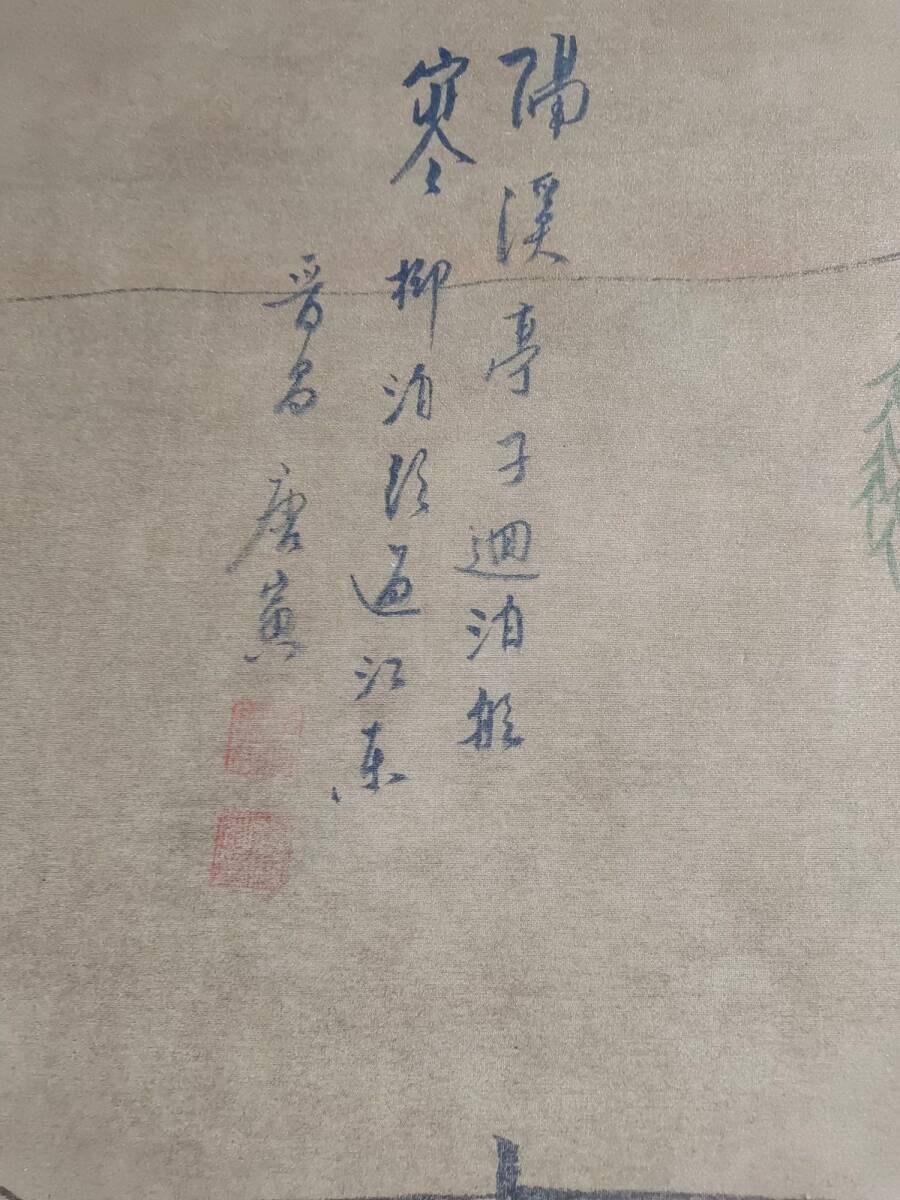 陽溪亭子迴泊船
寒柳泊頭逼江東
晉昌唐寅